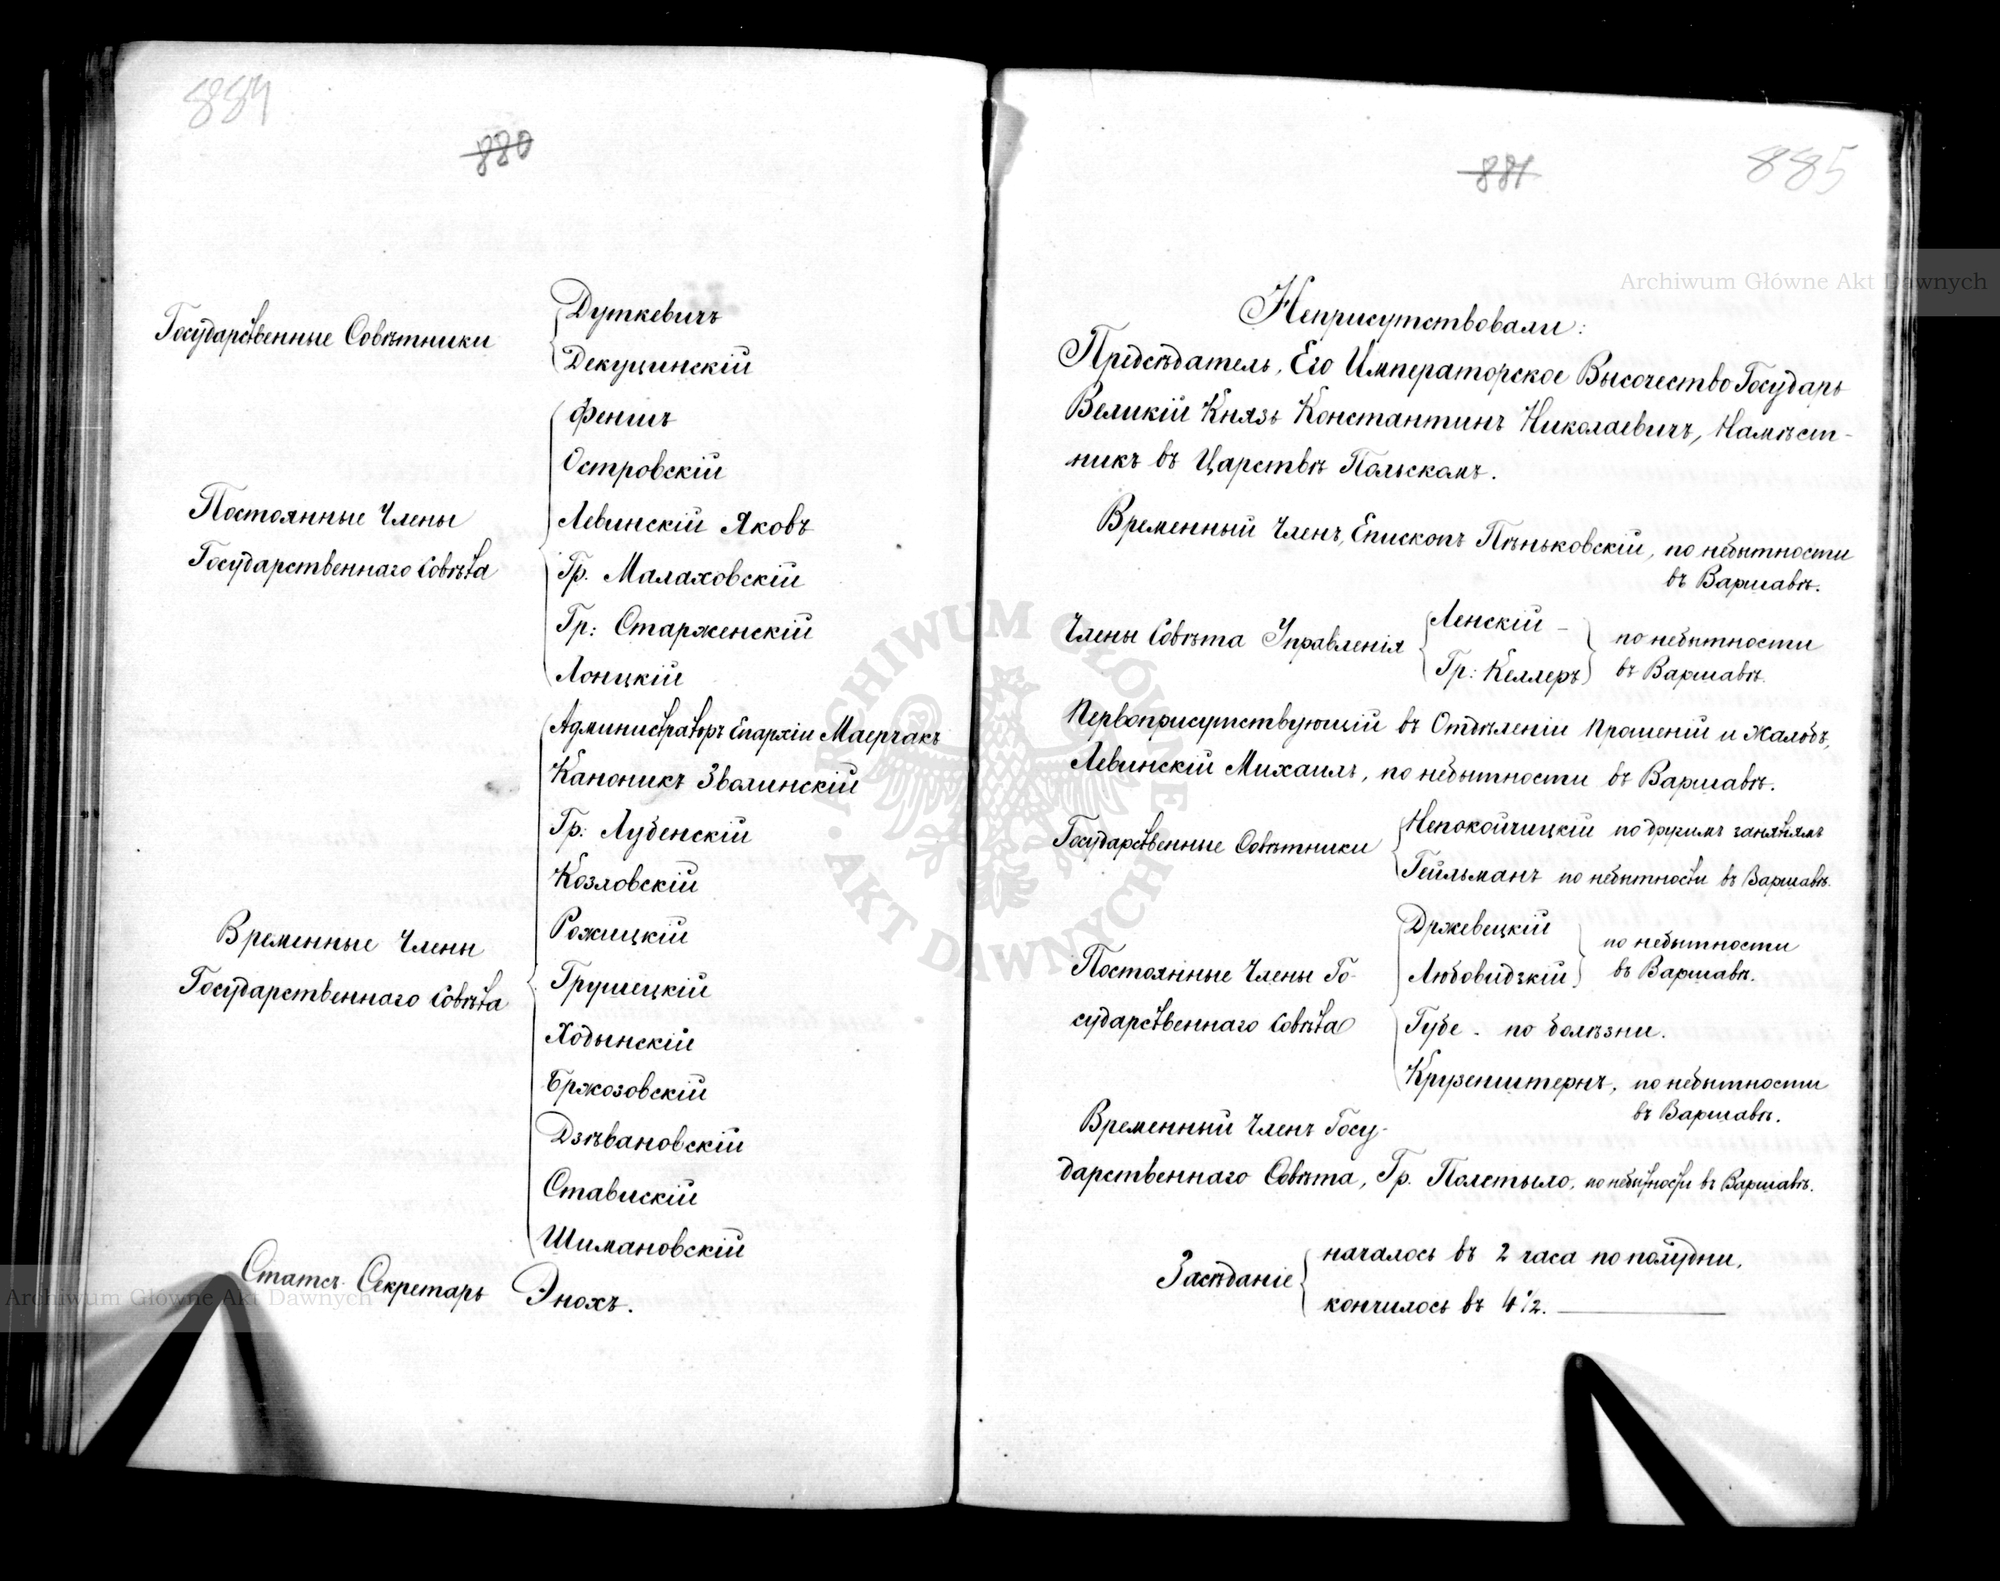 884
880
Государственные Совѣтники
Дуткевичъ
Декуцинскій
Постоянные Члены
Государственнаго Совѣта
Феншъ
Островскій
Левинскій Яковъ
Гр. Малаховскій
Гр: Старженскій
Лонцкій
Временные Члены
Государственнаго Совѣта
Администраторъ Епархіи Маерчакъ
Каноникъ Зволинскій
Гр: Лубенскій
Козловскій
Рожицкій
Грушецкій
Ходынскій
Бржозовскій
Дзѣвановскій
Ставискій
Шимановскій
Статсъ-Секретарь Энохъ.
885
881
Неприсутствовали:
Предсѣдатель, Его Императорское Высочество Государь
Великій Князь Константинъ Николаевичъ, Намѣст-
никъ въ Царствѣ Польскомъ.
Временный Членъ, Епископъ Пѣньковскій, по небытности
въ Варшавѣ.
Члены Совѣта Управленія
Ленскій –
Гр: Келлеръ
по небытности
въ Варшавѣ.
Первоприсутствующій въ Отдѣленіи Прошеній и Жалобъ,
Левинскій Михаилъ, по небытности въ Варшавѣ.
Государственные Совѣтники
Непокойчицкій по другимъ занятіямъ
Гейльманъ по небытности въ Варшавѣ.
Постоянные Члены Го-
сударственнаго Совѣта
Држевецкій
Любовидзкій
по небытности
въ Варшавѣ.
Губе - по болѣзни.
Крузенштернъ, по небытности
въ Варшавѣ.
Временный Членъ Госу-
дарственнаго Совѣта, Гр. Полетыло, по небытности въ Варшавѣ.
Засѣданіе
началось въ 2 часа по полудни,
кончилось въ 4 1/2.
Archiwum Główne Akt Dawnych
Archiwum Główne Akt Dawnych
ARCHIWUM GŁÓWNE
AKT DAWNYCH